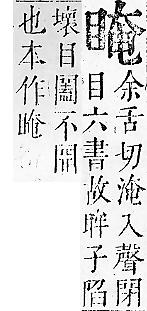 䁆
余舌切淹入聲閉
目六書故眸子陷
壞目闔不開
也本作